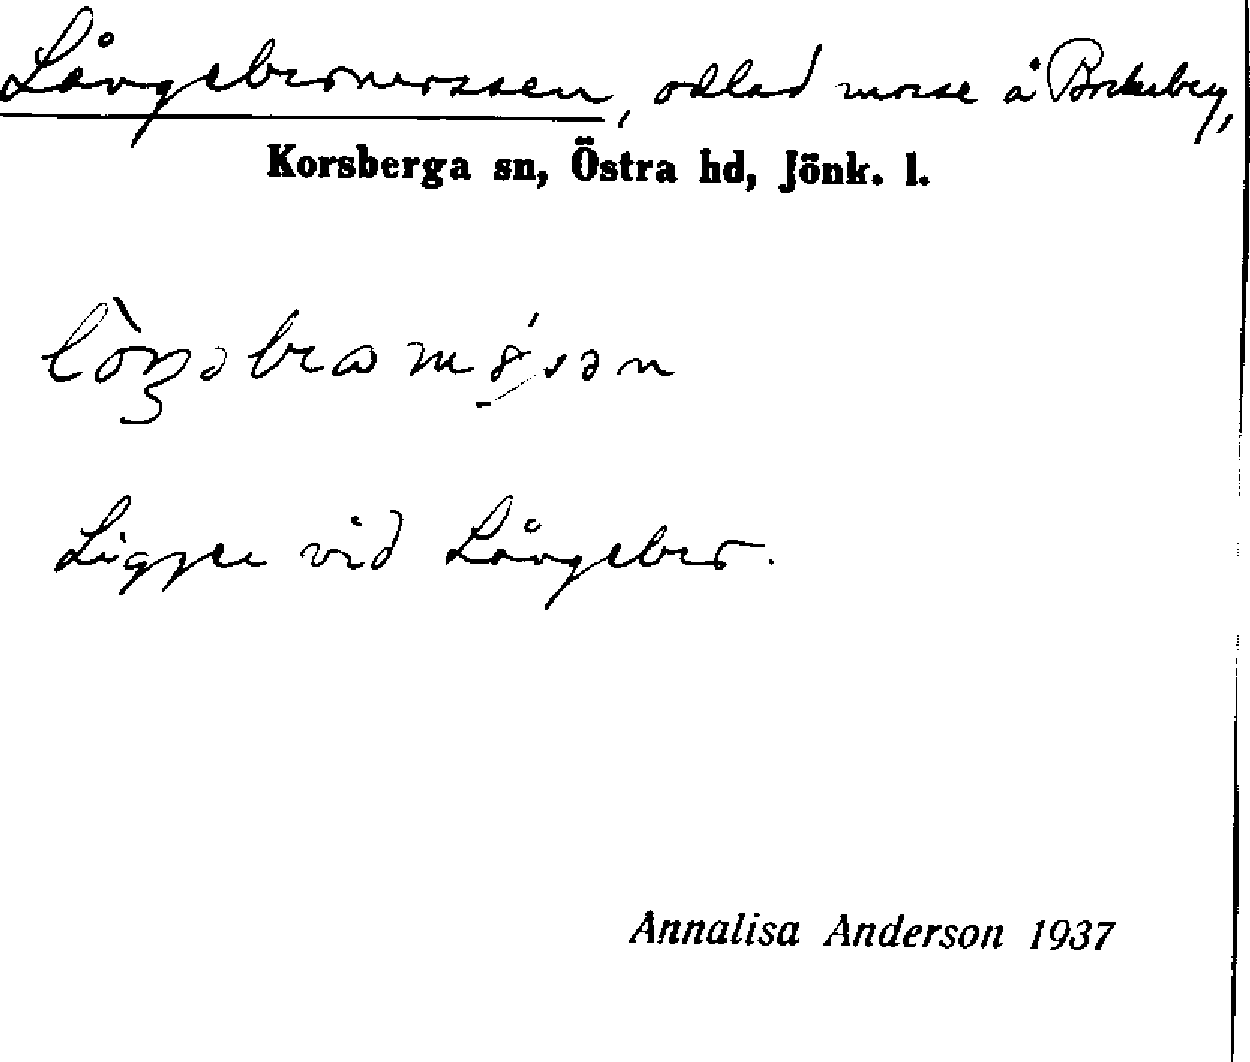 Långebromossen, odlad mosse å Bockaberg,
Korsberga sn, Östra hd, Jönk. l.
Ligger vid Långebro.
Annalisa Anderson 1937